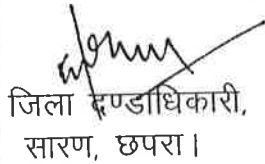 जिला दण्डाधिकारी,
सारण, छपरा।